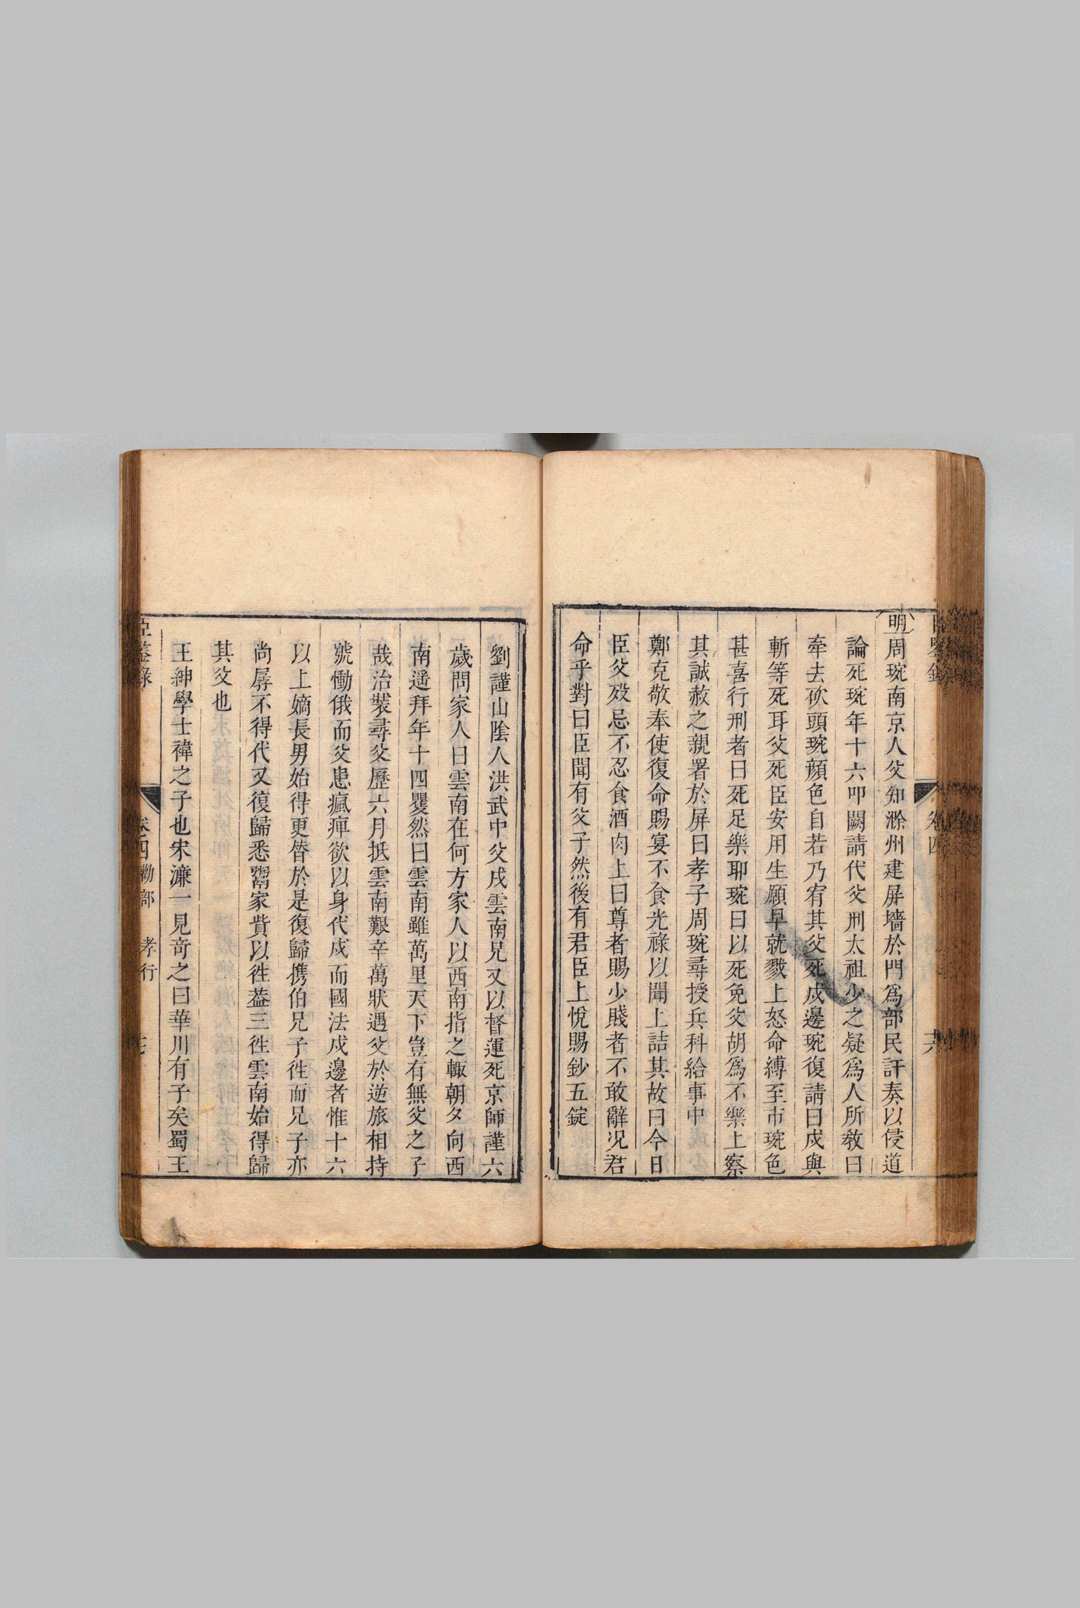 明周琬南京人父知滁州建屏墻於門爲部民訐奏以侵道
論死琬年十六叩闕請代父刑太祖少之疑爲人所教曰
牽去砍頭琬顏色自若乃宥其父死戍邊琬復請曰戍與
斬等死耳父死臣安用生願早就戮上怒命縛至市琬色
甚喜行刑者曰死足樂耶琬曰以死免父胡爲不樂上察
其誠赦之親署於屏曰孝子周琬尋授兵科給事中
鄭克敬奉使復命賜宴不食光祿以聞上詰其故曰今日
臣父歿忌不忍食酒肉上曰尊者賜少賤者不敢辭况君
命乎對曰臣聞有父子然後有君臣上悅賜鈔五錠
劉謹山陰人洪武中父戍雲南兄又以督運死京師謹六
歲問家人曰雲南在何方家人以西南指之輙朝夕向西
南遥拜年十四矍然曰雲南雖萬里天下豈有無父之子
哉治裝尋父歷六月抵雲南艱辛萬狀遇父於逆旅相持
號慟俄而父患瘋痺欲以身代戍而國法戍邊者惟十六
以上嫡長男始得更替於是復歸携伯兄子徃而兄子亦
尚孱不得代又復歸悉鬻家貲以徃葢三徃雲南始得歸
其父也
王紳學士禕之子也宋濂一見竒之曰華川有子矣蜀王
臣鑒錄
卷四勸部
孝行